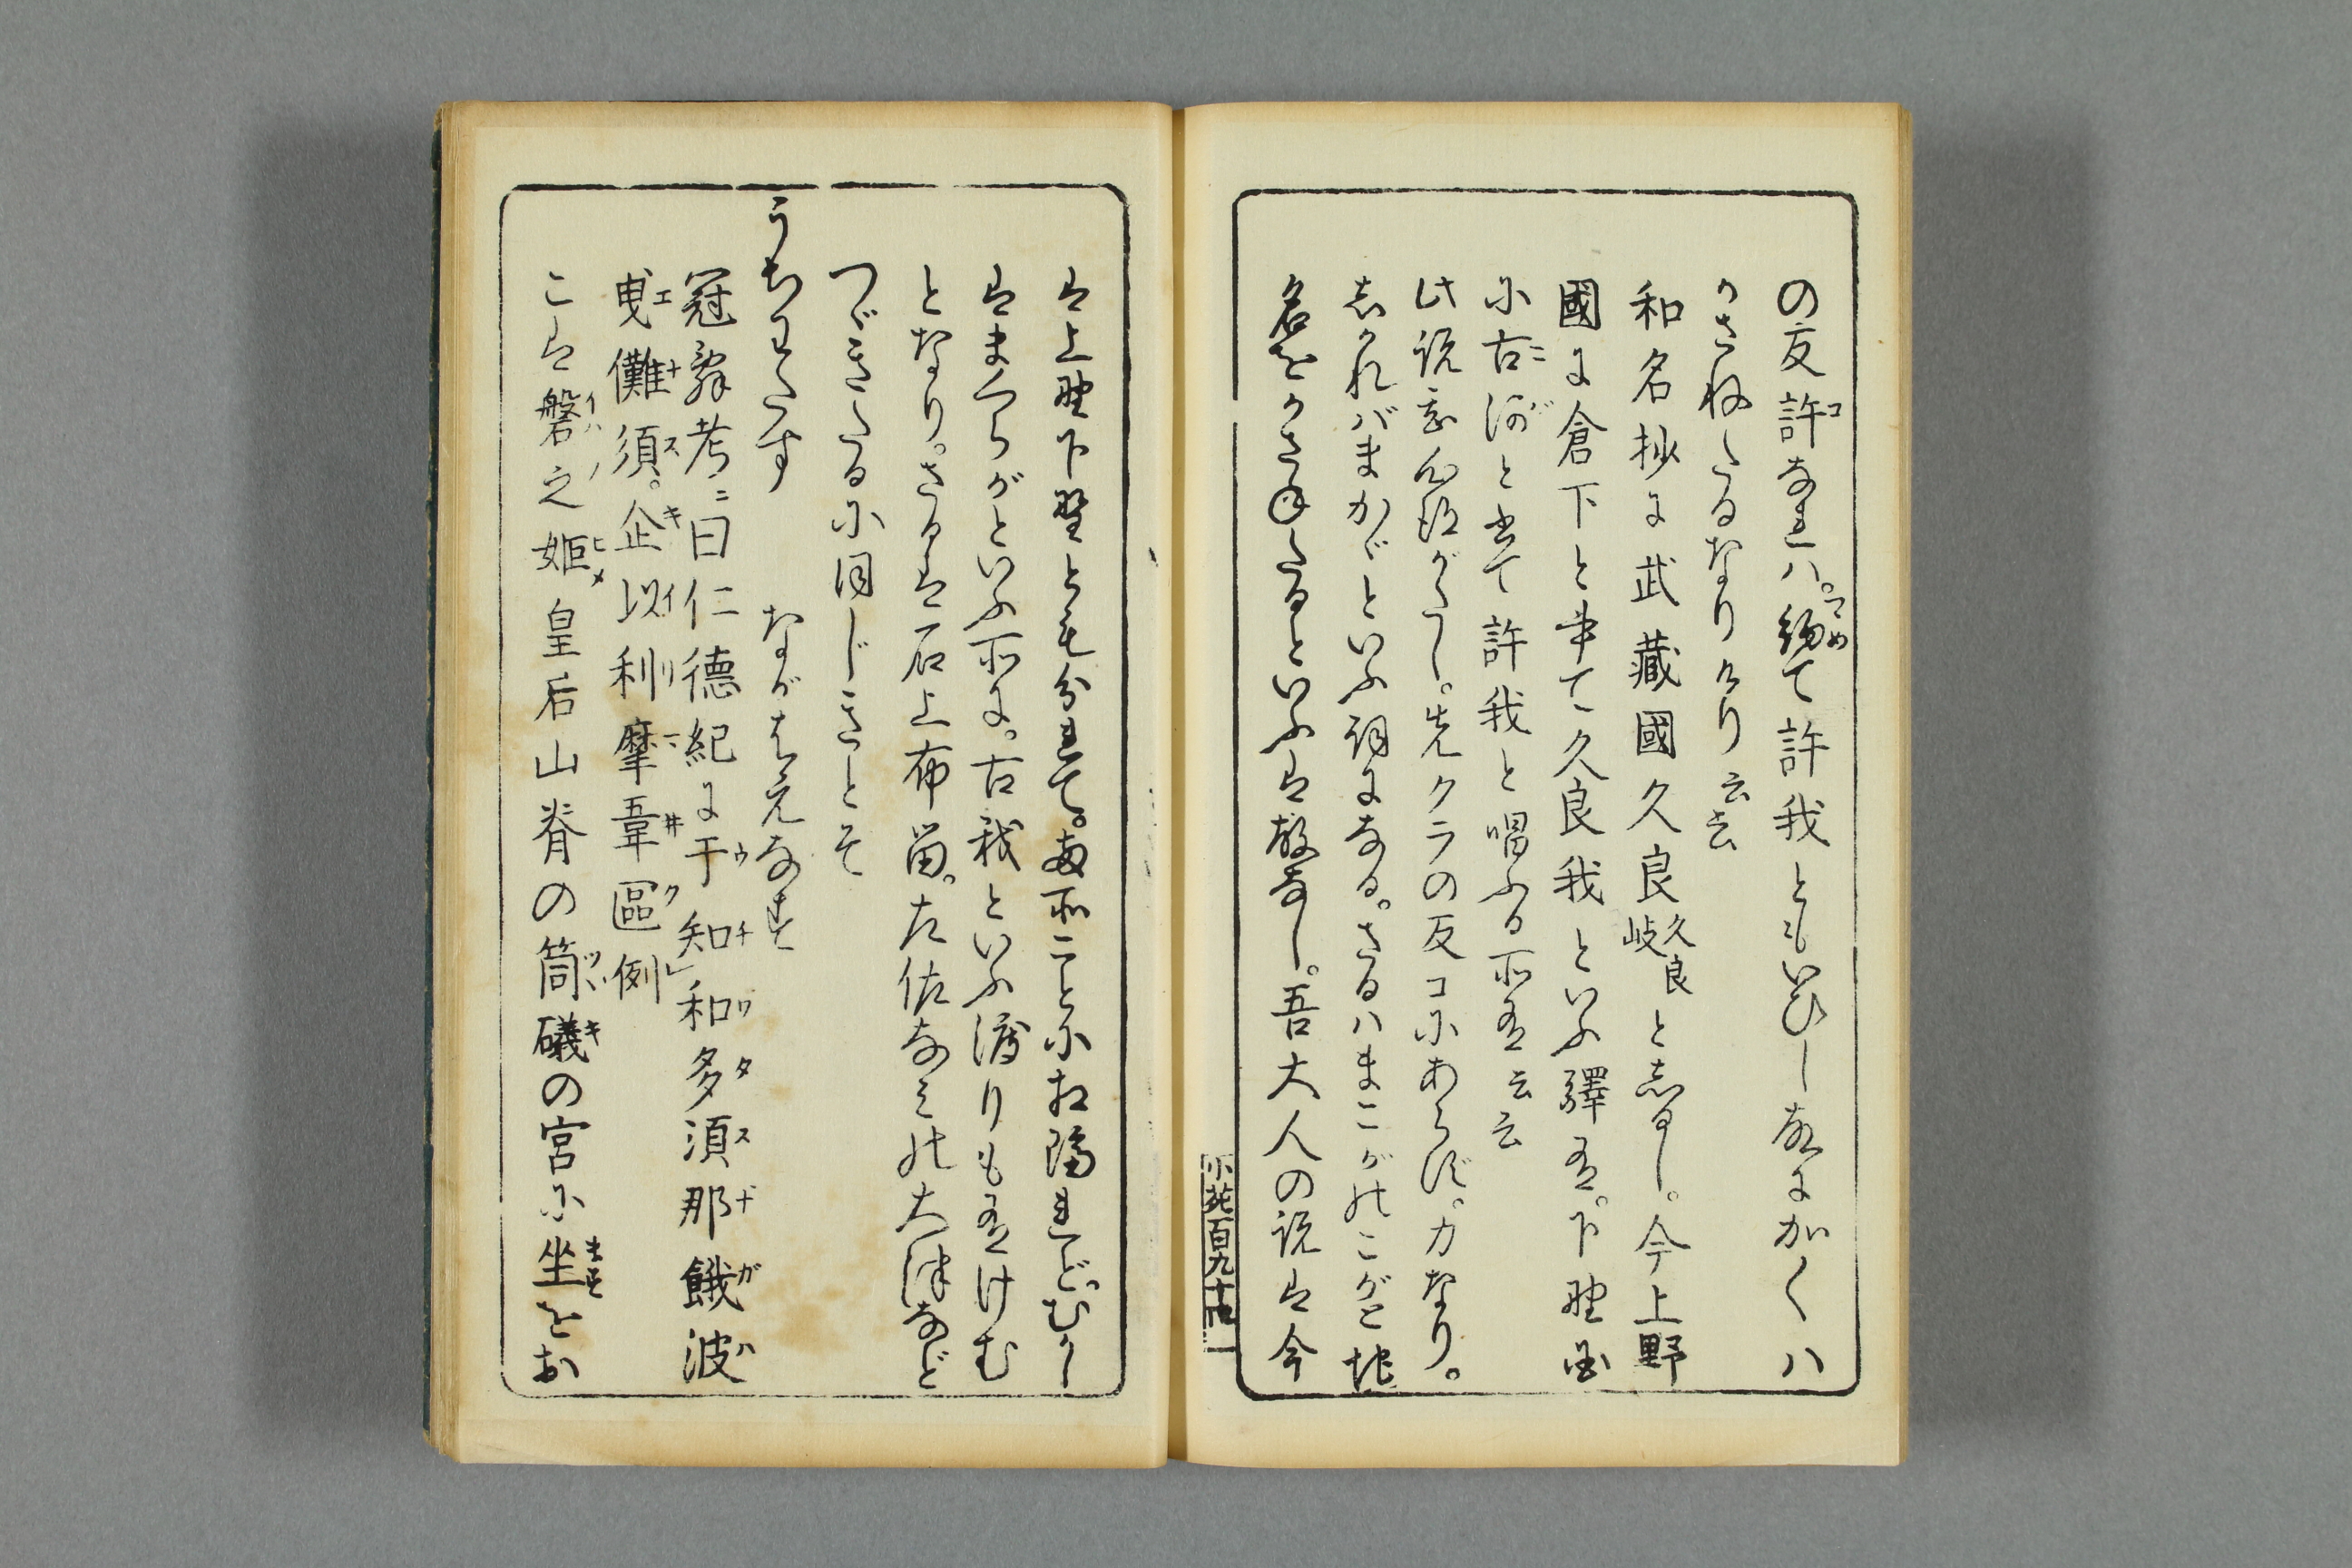 の反許なれハ。約て許我ともいひし故にかくハ
かさねしたるなりけり云云
和名抄に武藏國久良久良岐としるし。今上野
國に倉下と書て久良我といふ驛有。下野国
に古河と書て許我と唱ふる所有云云
此説意得がたし。先クラの反コにあらず。カなり。
しかれバまかがといふ詞になる。さるハまこがのこがと地
名をかさねたるといふは故なし。吾大人の説は今
小苑百九十
は上野下野とも分れて。両所ことに相隔れど。むかし
はまくらがといふ所に。古我といふ渡りも有けむ
となり。さるは石上布留。左佐なミの大津などゝ
つゞきたるに同じきことそ
うちわたす　ながはえなす
冠辞考ニ曰仁德紀に于知和多須那餓波
曳儺須。企以利摩韋區例
こは磐之姫皇后山脊の筒礒の宮に坐をお